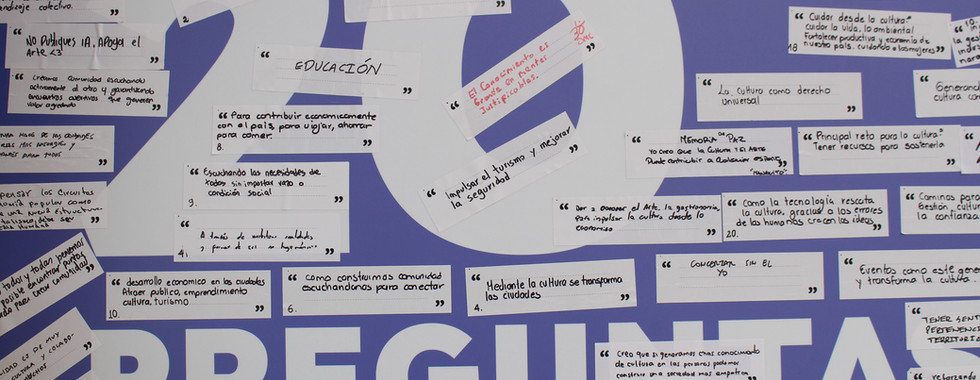 20
PREGUNTAS
colectivo.
”
2.
”
“
NO PUBliques IA, APOYA el
Arte <3
”
Creamos comunidad escuchando
activamente al otro y garantizando
encuentros asertivos que generen
valor agregado
“
EDUCACIÓN
”
“
El Conocimiento es
Grande en mentes
”
“
Cuidar desde la cultura:
cuidar la vida, lo ambiental
Fortalecer productiva y economía de
nuestro país. cuidando a las mujeres
18
”
“
La cultura como derecho
universal
”
“
Generando
cultura con
“
Para contribuir economicamente
con el país, para viajar, ahorrar
para comer.
8.
”
“
Impulsar el turismo y mejorar
la seguridad
”
“
MEMORIA DE PAZ
Yo creo que la Cultura y El Arte
Puede contribuir a
”
“
Principal reto para la cultura:
Tener recursos para sostenerla
”
para todos
”
“
Escuchando las necesidades de
todos sin importar raza o
condición social
9.
”
“
Dar a conocer el Arte, la gastronomia,
Para impulsar la cultura desde lo
economico
”
“
Como la tecnología rescata
la cultura, gracias a los errores
de los humanos crecen las ideas,
20.
”
“
Caminos para
Gestión cultural
la confianza
pensar los Circuitos
popular como
”
“
A través de
4.
”
todas y todos
posible encontrar puntos
para crear comunidad
”
“
desarrollo economico en las ciudades
Atraer publico, emprendimiento
cultura, turismo
10.
”
“
como construimos comunidad
escuchandonos para conectar
6.
”
“
Mediante la cultura se transforma
las ciudades
4.
”
“
CONCERTAR SIN EL
YO
”
“
Eventos como este generan
y transforma la cultura
“
TENER SENT
PERTENENCIA
TERRITORIO
ES DE MUY
CULTURA Y
”
“
Creo que si generamos mas conocimiento
de cultura en las personas podemos
construir una sociedad mas empatica
”
“
reforzando